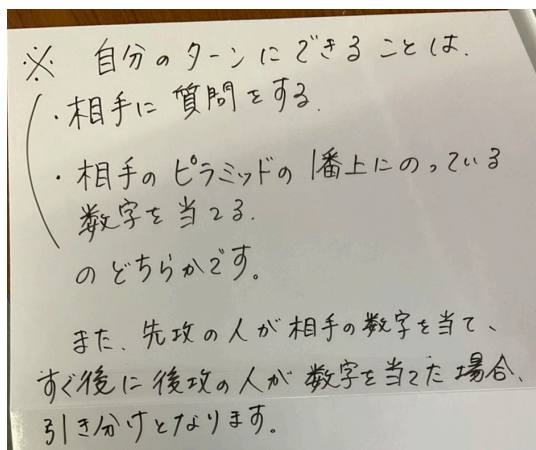 ※ 自分のターンにできることは、
・相手に質問をする、
・相手のピラミッドの1番上にのっている
数字を当てる、
のどちらかです。
また、先攻の人が相手の数字を当て、
すぐ後に後攻の人が数字を当てた場合、
引き分けとなります。